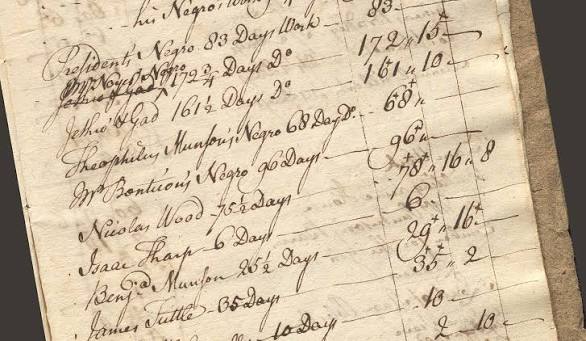 his Negro's Work
Presidents Negro 83 Days Work — 83
Mr. Noyes' Negro 172 3/4 Days Do — 172 " 15
Jethro & Gad 161 1/2 Days Do — 161 " 10
Theophilus Munson's Negro 68 Days Do. — 68 "
Mr. Bonticou's Negro 96 Days — 96 "
Nicolas Wood — 75 1/2 Days — 78 " 16 " 8
Isaac Tharp — 6 Days — 6
Benj.a Munson 25 1/2 Days — 29 " 16
James Tuttle — 35 Days — 35 " 2
10 Days — 10
2 — 10